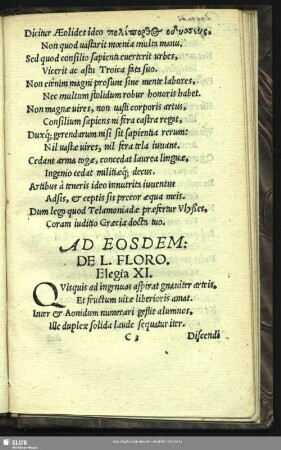 Dicitur Æolides ideo πολίπορθος οδυσσεὺς,
Non quod vastarit mœnia multa manu.
Sed quod consilio sapienti euerterit urbes,
Vicerit ac astu Troica fata suo.
Non etenim magni prosunt sine mente labores,
Nec multum stolidum robur honoris habet.
Non magnæ uires, non uasti corporis artus,
Consilium sapiens ni fira castra regat,
Duxq; gerendarum nisi sit sapientia rerum:
Nil uastæ uires, nil fira tela iuuant.
Cedant arma togæ, concedat laurea linguæ,
Ingenio cedat militiæq; decus.
Artibus à teneris ideo innutrita iuuentus
Adsis, & ceptis sis precor æqua meis.
Dum lego quod Telamoniadæ præfertur Vlysses,
Coram iuditio Græcia docta tuo.
AD EOSDEM:
DE L. FLORO.
Elegia XI.
QVisquis ad ingenuas aspirat gnauiter artes,
Et fructum uitæ liberioris amat.
Inter & Aonidum numerari gestit alumnos,
Ille duplex solida laude sequatur iter.
C 3 Discendi
SLUB